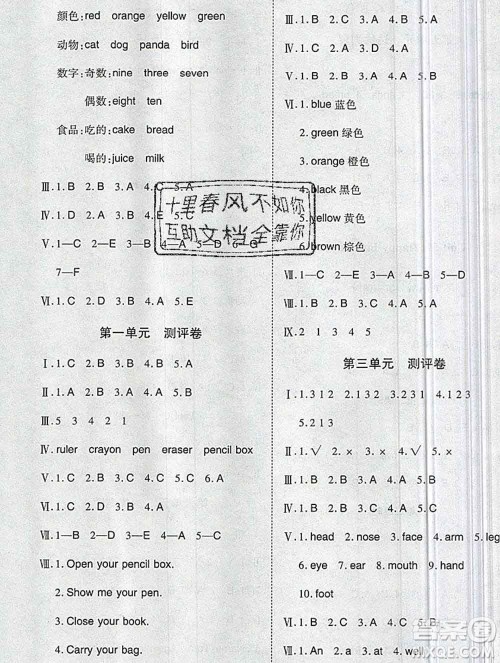 颜色:red orange yellow green
动物:cat dog panda bird
数字:奇数:nine three seven
偶数:eight ten
食品:吃的:cake bread
喝的:juice milk
Ⅲ.1.B 2.B 3.A 4.C 5.A
Ⅳ.1.C 2.A 3.B
Ⅴ.1—C 2—E 3—B
7—F
Ⅵ.1.C 2.D 3.B 4.A 5.E
第一单元 测评卷
Ⅰ.1.C 2.C 3.B 4.B 5.A
Ⅱ.1.A 2.B 3.B 4.A 5.B
Ⅲ.5 3 4 2 1
Ⅳ.ruler crayon pen eraser pencil box
Ⅴ.1.C 2.B 3.C 4.A 5.C
Ⅵ.1.D 2.A 3.B 4.C
Ⅶ.1—B 2—D 3—A 4—E 5—C
Ⅷ.1.Open your pencil box.
2.Show me your pen.
3.Close your book.
4.Carry your bag.
十里春风不如你
互助文档全靠你
Ⅲ.1.B 2.C 3.A 4.C 5.A
Ⅳ.1.C 2.D 3.A 4.B
Ⅴ.1.B 2.C 3.A 4.C 5.A
Ⅵ.1.blue 蓝色
2.green 绿色
3.orange 橙色
4.black 黑色
5.yellow 黄色
6.brown 棕色
Ⅶ.1—C 2—D 3—B 4—A
Ⅷ.1.B 2.D 3.C 4.A
Ⅸ.2 1 3 4 5
第三单元 测评卷
Ⅰ.1.3 1 2 2.1 3 2 3.2 3 1 4.3 2 1
5.2 1 3
Ⅱ.1.√ 2.× 3.× 4.√ 5.×
Ⅲ.1.C 2.D 3.B 4.E 5.A
Ⅳ.1.C 2.A 3.B 4.A 5.B
Ⅴ.1.head 2.nose 3.face 4.arm 5.leg
6.eye 7.ear 8.mouth 9.hand
10.foot
Ⅵ.1.B 2.C 3.A 4.B 5.A
Ⅶ.1.An 2.a 3.at 4.well
答案圈
MXQE.COM